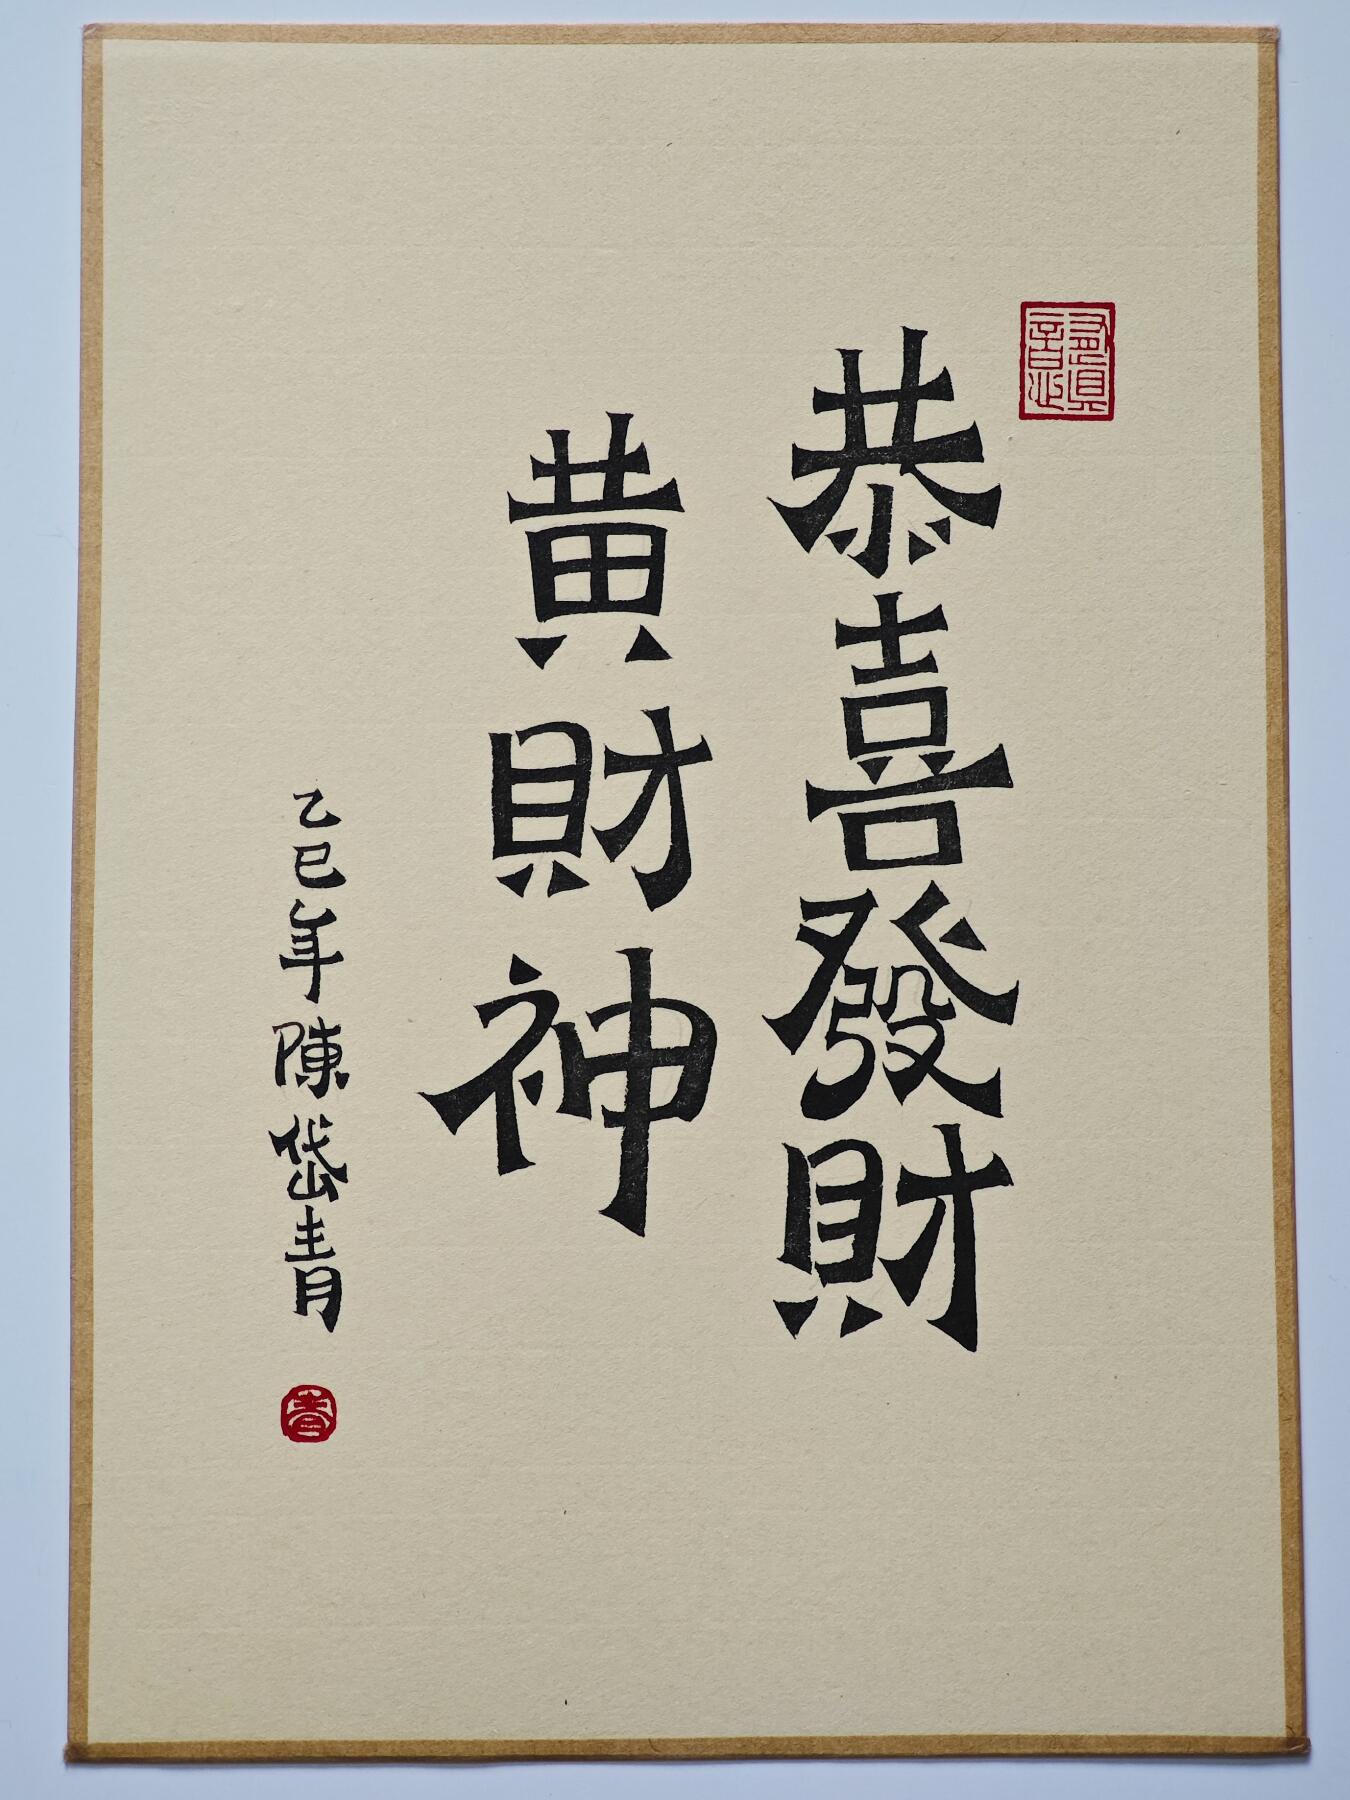 恭喜發財
黃財神
乙巳年陳岱青